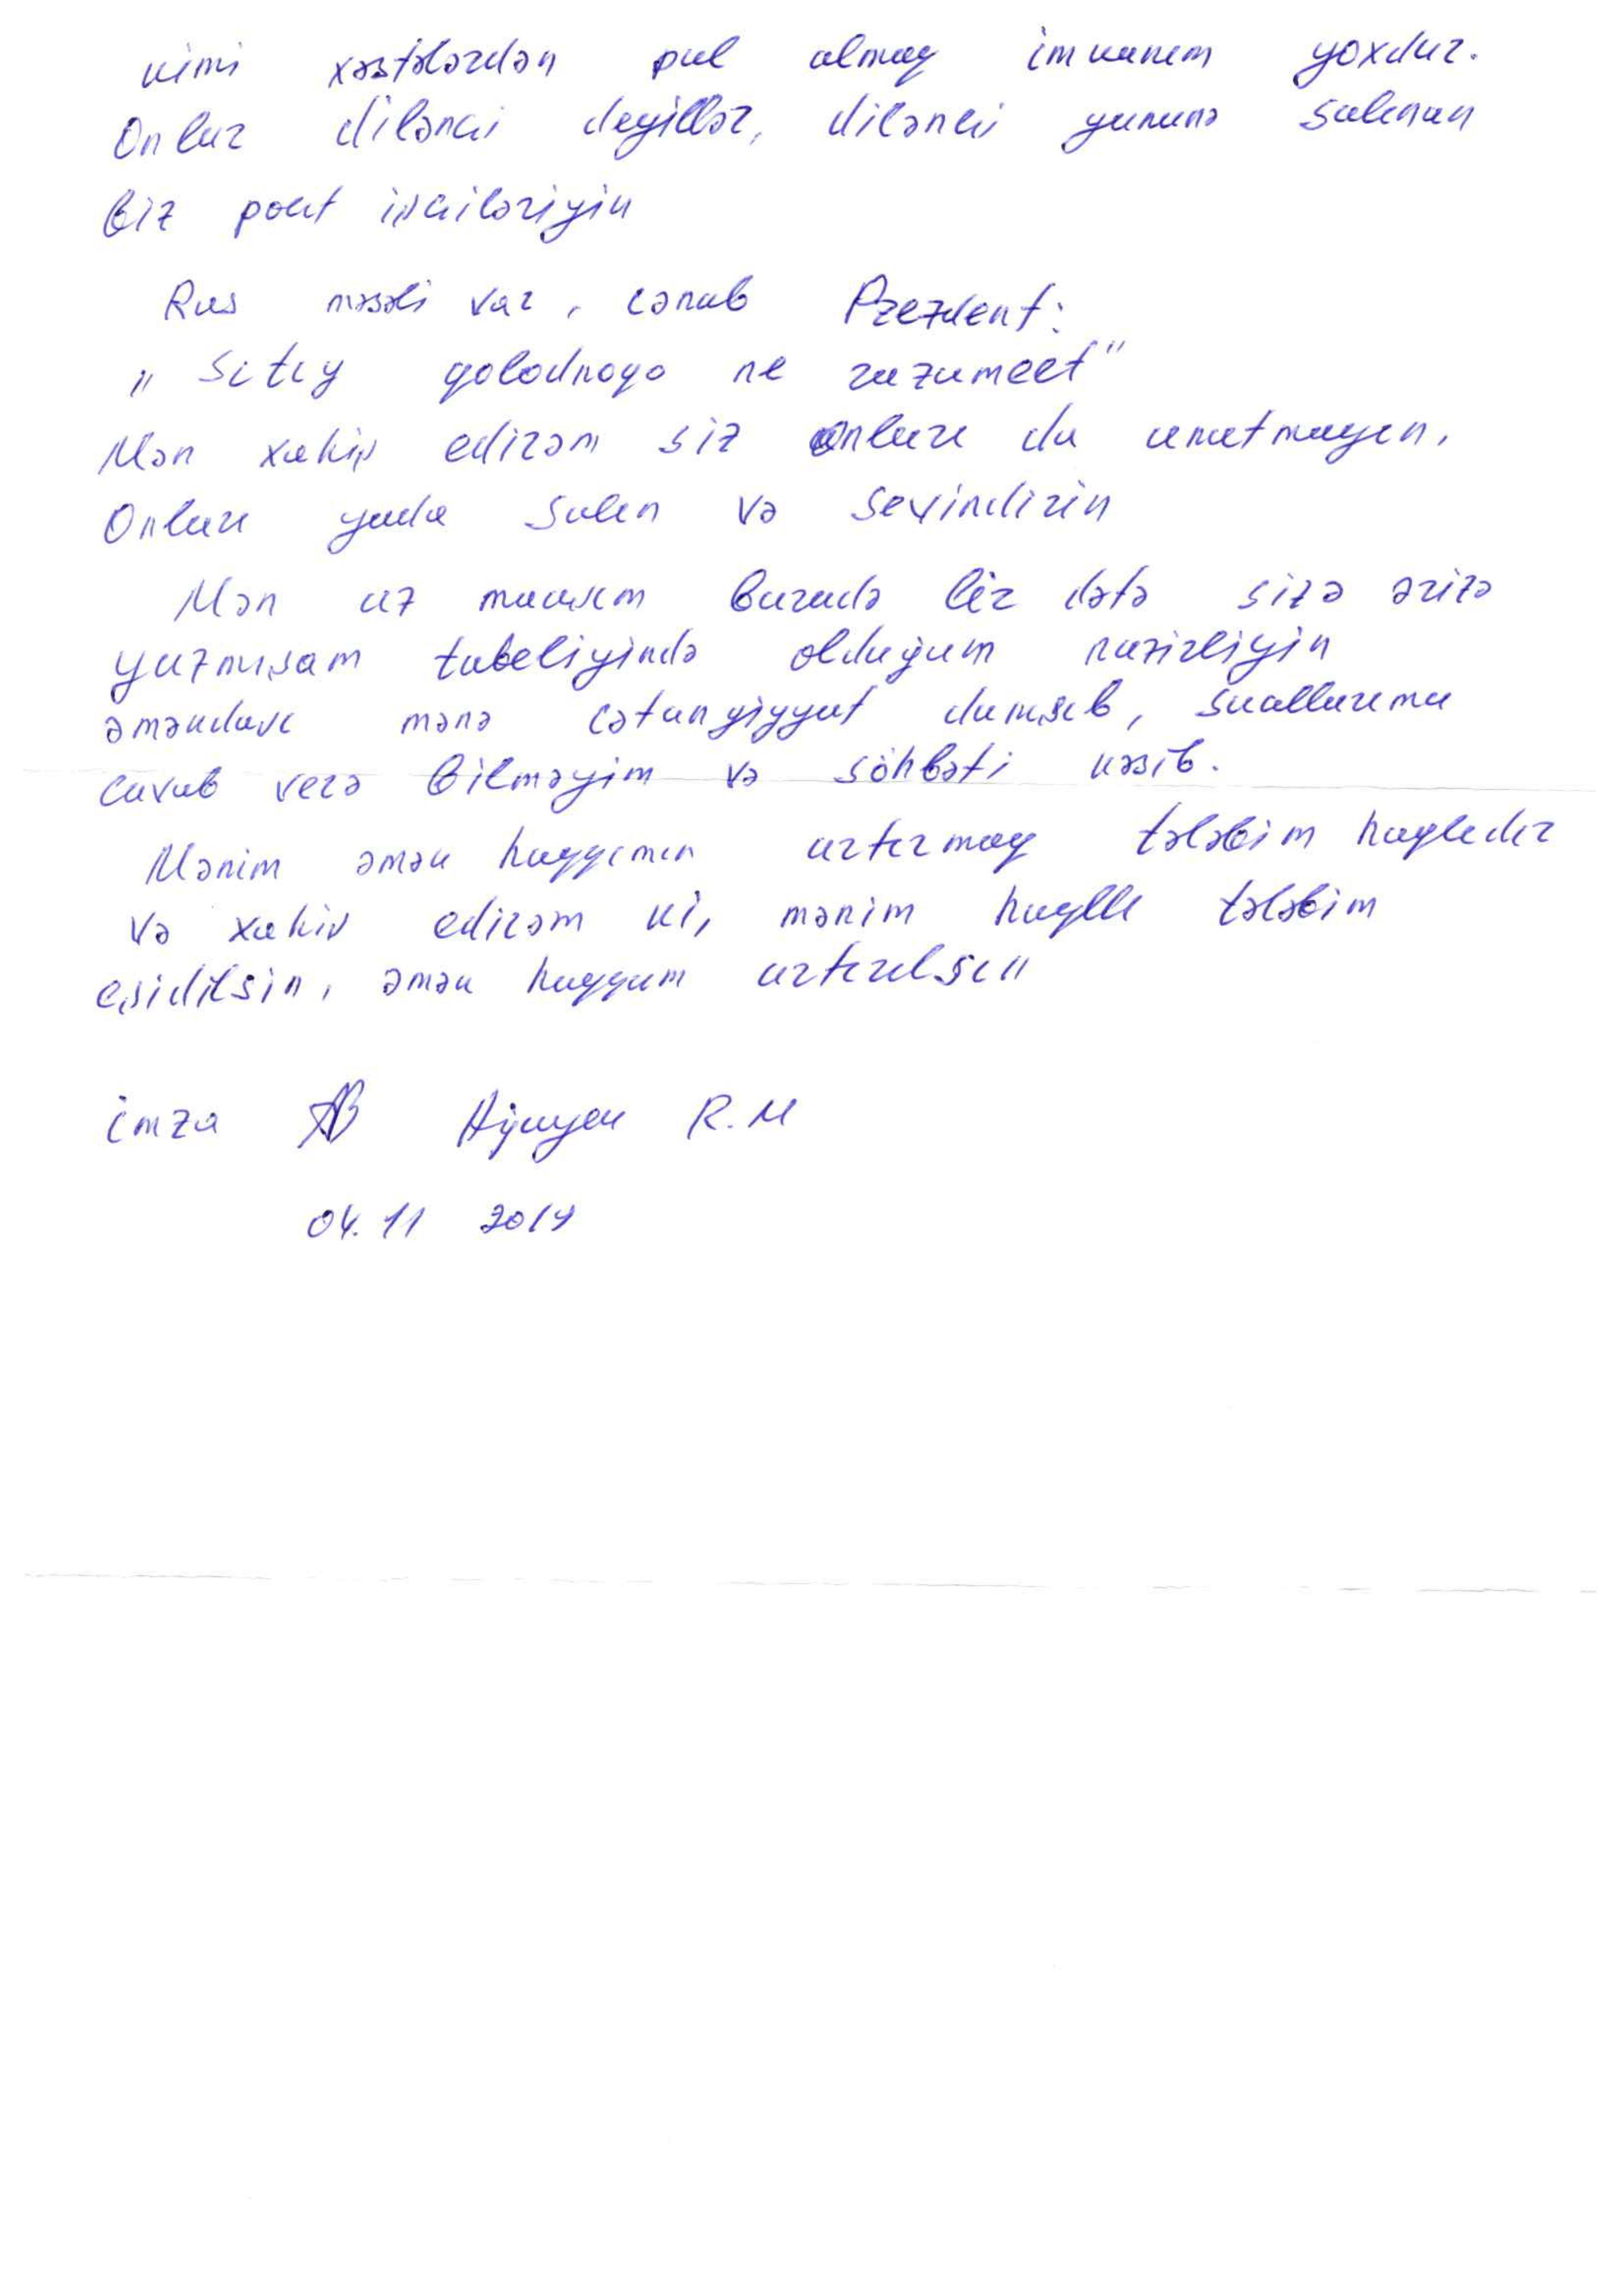 kimi xəstələrdən pul almaq imkanım yoxdur.
Onlar dilənci deyillər, dilənci gününə salınan
biz poçt işçiləriyik
Rus məsəli var, cənab Prezdent:
„Sıtıy qolodnoqo ne razumeet"
Mən xahiş edirəm siz onları da unutmayın.
Onları yada salın və sevindirin
Mən az maaşım barədə bir dəfə sizə ərizə
yazmışam tabeliyində olduğum nazirliyin
əməkdaşı mənə zəng danışıb, suallarıma
cavab verə bilməyim və söhbəti kəsib.
Mənim əmək haqqımın artırmaq tələbim haqlıdır
və xahiş edirəm ki, mənim haqllı tələbim
eşidilsin, əmək haqqım artırılsın
imza R.M
04.11 2019